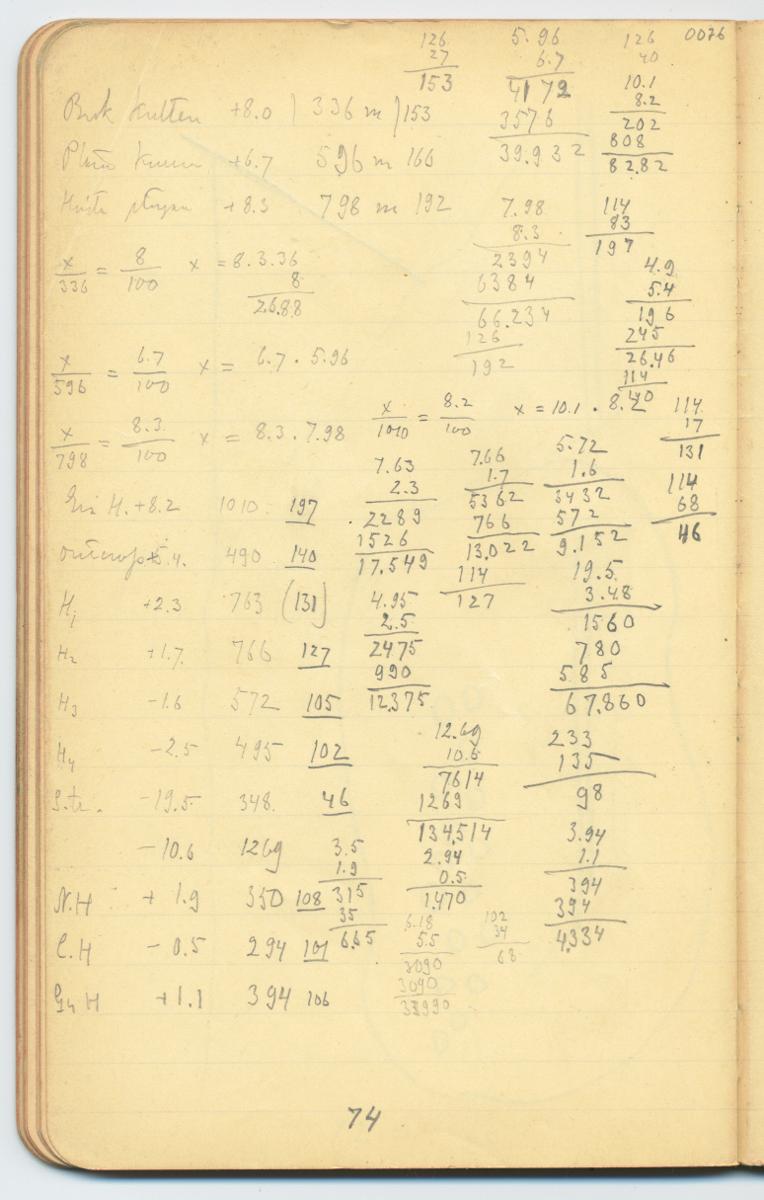 126 5.96 126 0076
27 6.7 40
153 4172 10.1
+8.0 336 m 153 3576 8.2
39.932 202
+6.7 596 m 166 808
82.82
+8.3 798 m 192 7.98 114
8.3 83
2394 197
x/336 = 8/100 x = 8.3.36 6384 4.9
8 66.234 5.4
26.88 126 196
192 245
26.46
x/596 = 6.7/100 x = 6.7 . 5.96 114
40
x/1010 = 8.2/100 x = 10.1 . 8.2 114
17
131
x/798 = 8.3/100 x = 8.3 . 7.98
7.63 7.66 5.72
2.3 1.7 1.6 114
2289 5362 3432 68
1526 766 572 46
17.549 13.022 9.152
H. +8.2 1010 197
outcrop 5.4. 490 140
114 19.5
127 3.48
H1 +2.3 763 (131) 4.95 1560
2.5 780
H2 +1.7 766 127 2475 585
990 67.860
H3 -1.6 572 105 12.375
H4 -2.5 495 102 12.69 233
10.6 135
7614 98
S.te. -19.5 348. 46 1269
134,514
-10.6 1269 3.5 2.94 3.94
1.9 0.5 1.1
N.H + 1.9 350 108 315 1.470 394
35 394
6.65 4.334
C.H - 0.5 294 101 6.18 102
5.5 34
3090 68
+1.1 394 106 3090
33990
74